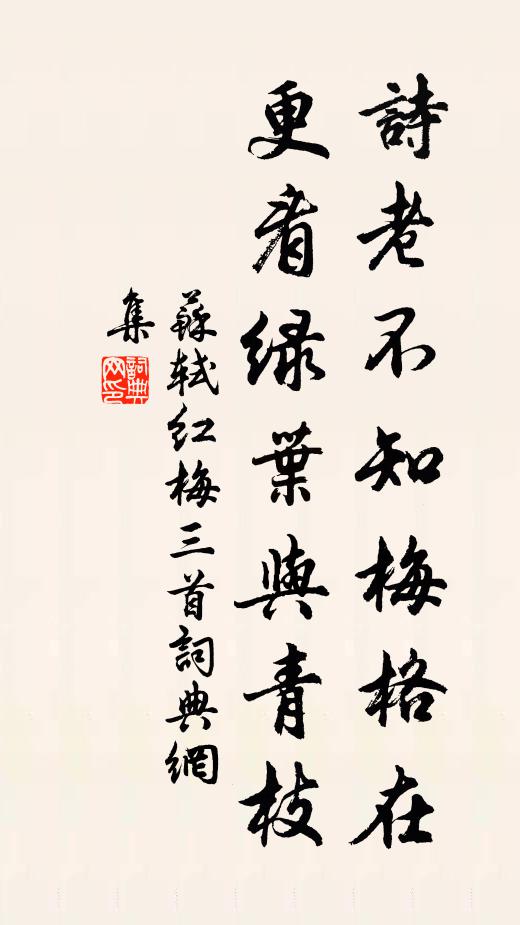 詩老不知梅格在
更看绿葉與青枝
蘇軾红梅三首詞典網
集
詞典网印